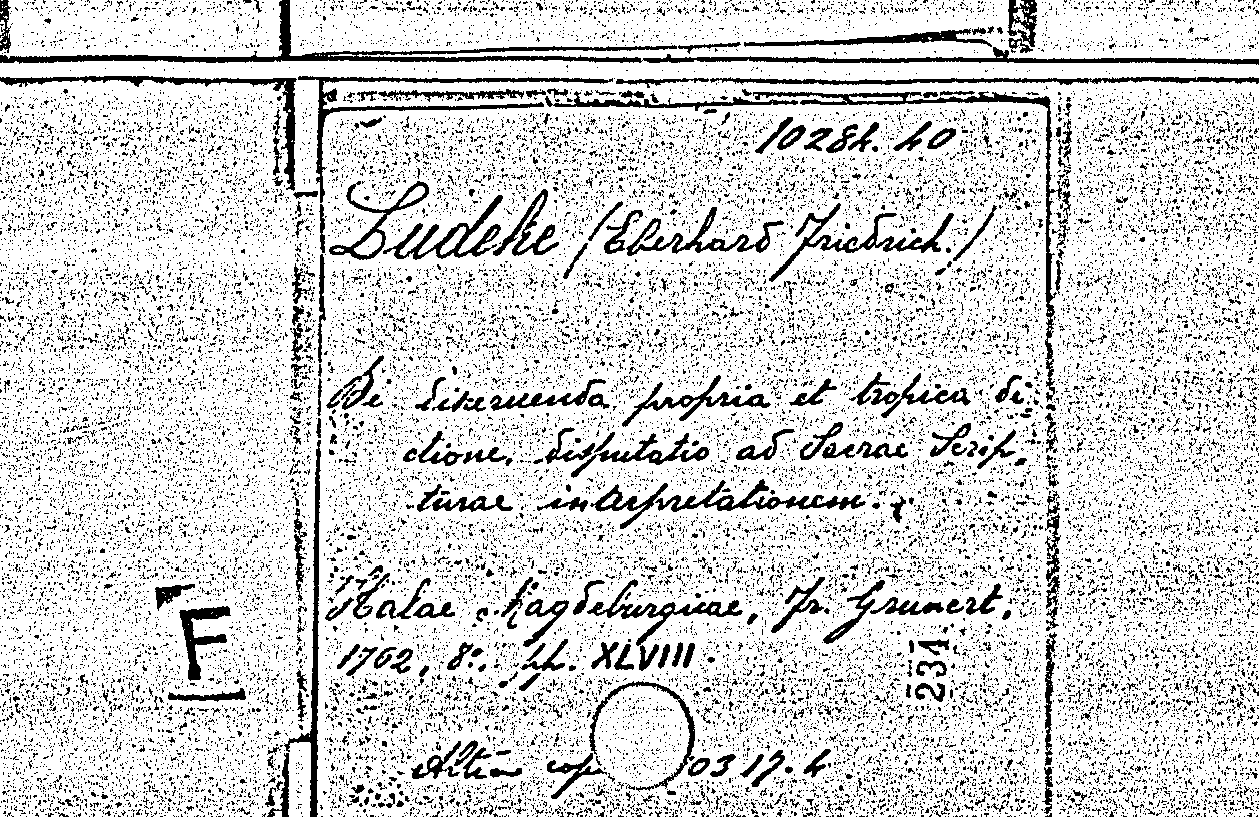 10284. 40
Ludeke (Eberhard Friedrich.)
De diżernenda propria et tropica di
ctione, disputatio ad Sacrae Scrip,
turae interpretationem.
Halae Magdeburgicae, Fr. Grunert,
1762, 8º. pp. XLVIII.
F
234
cop 0317.4